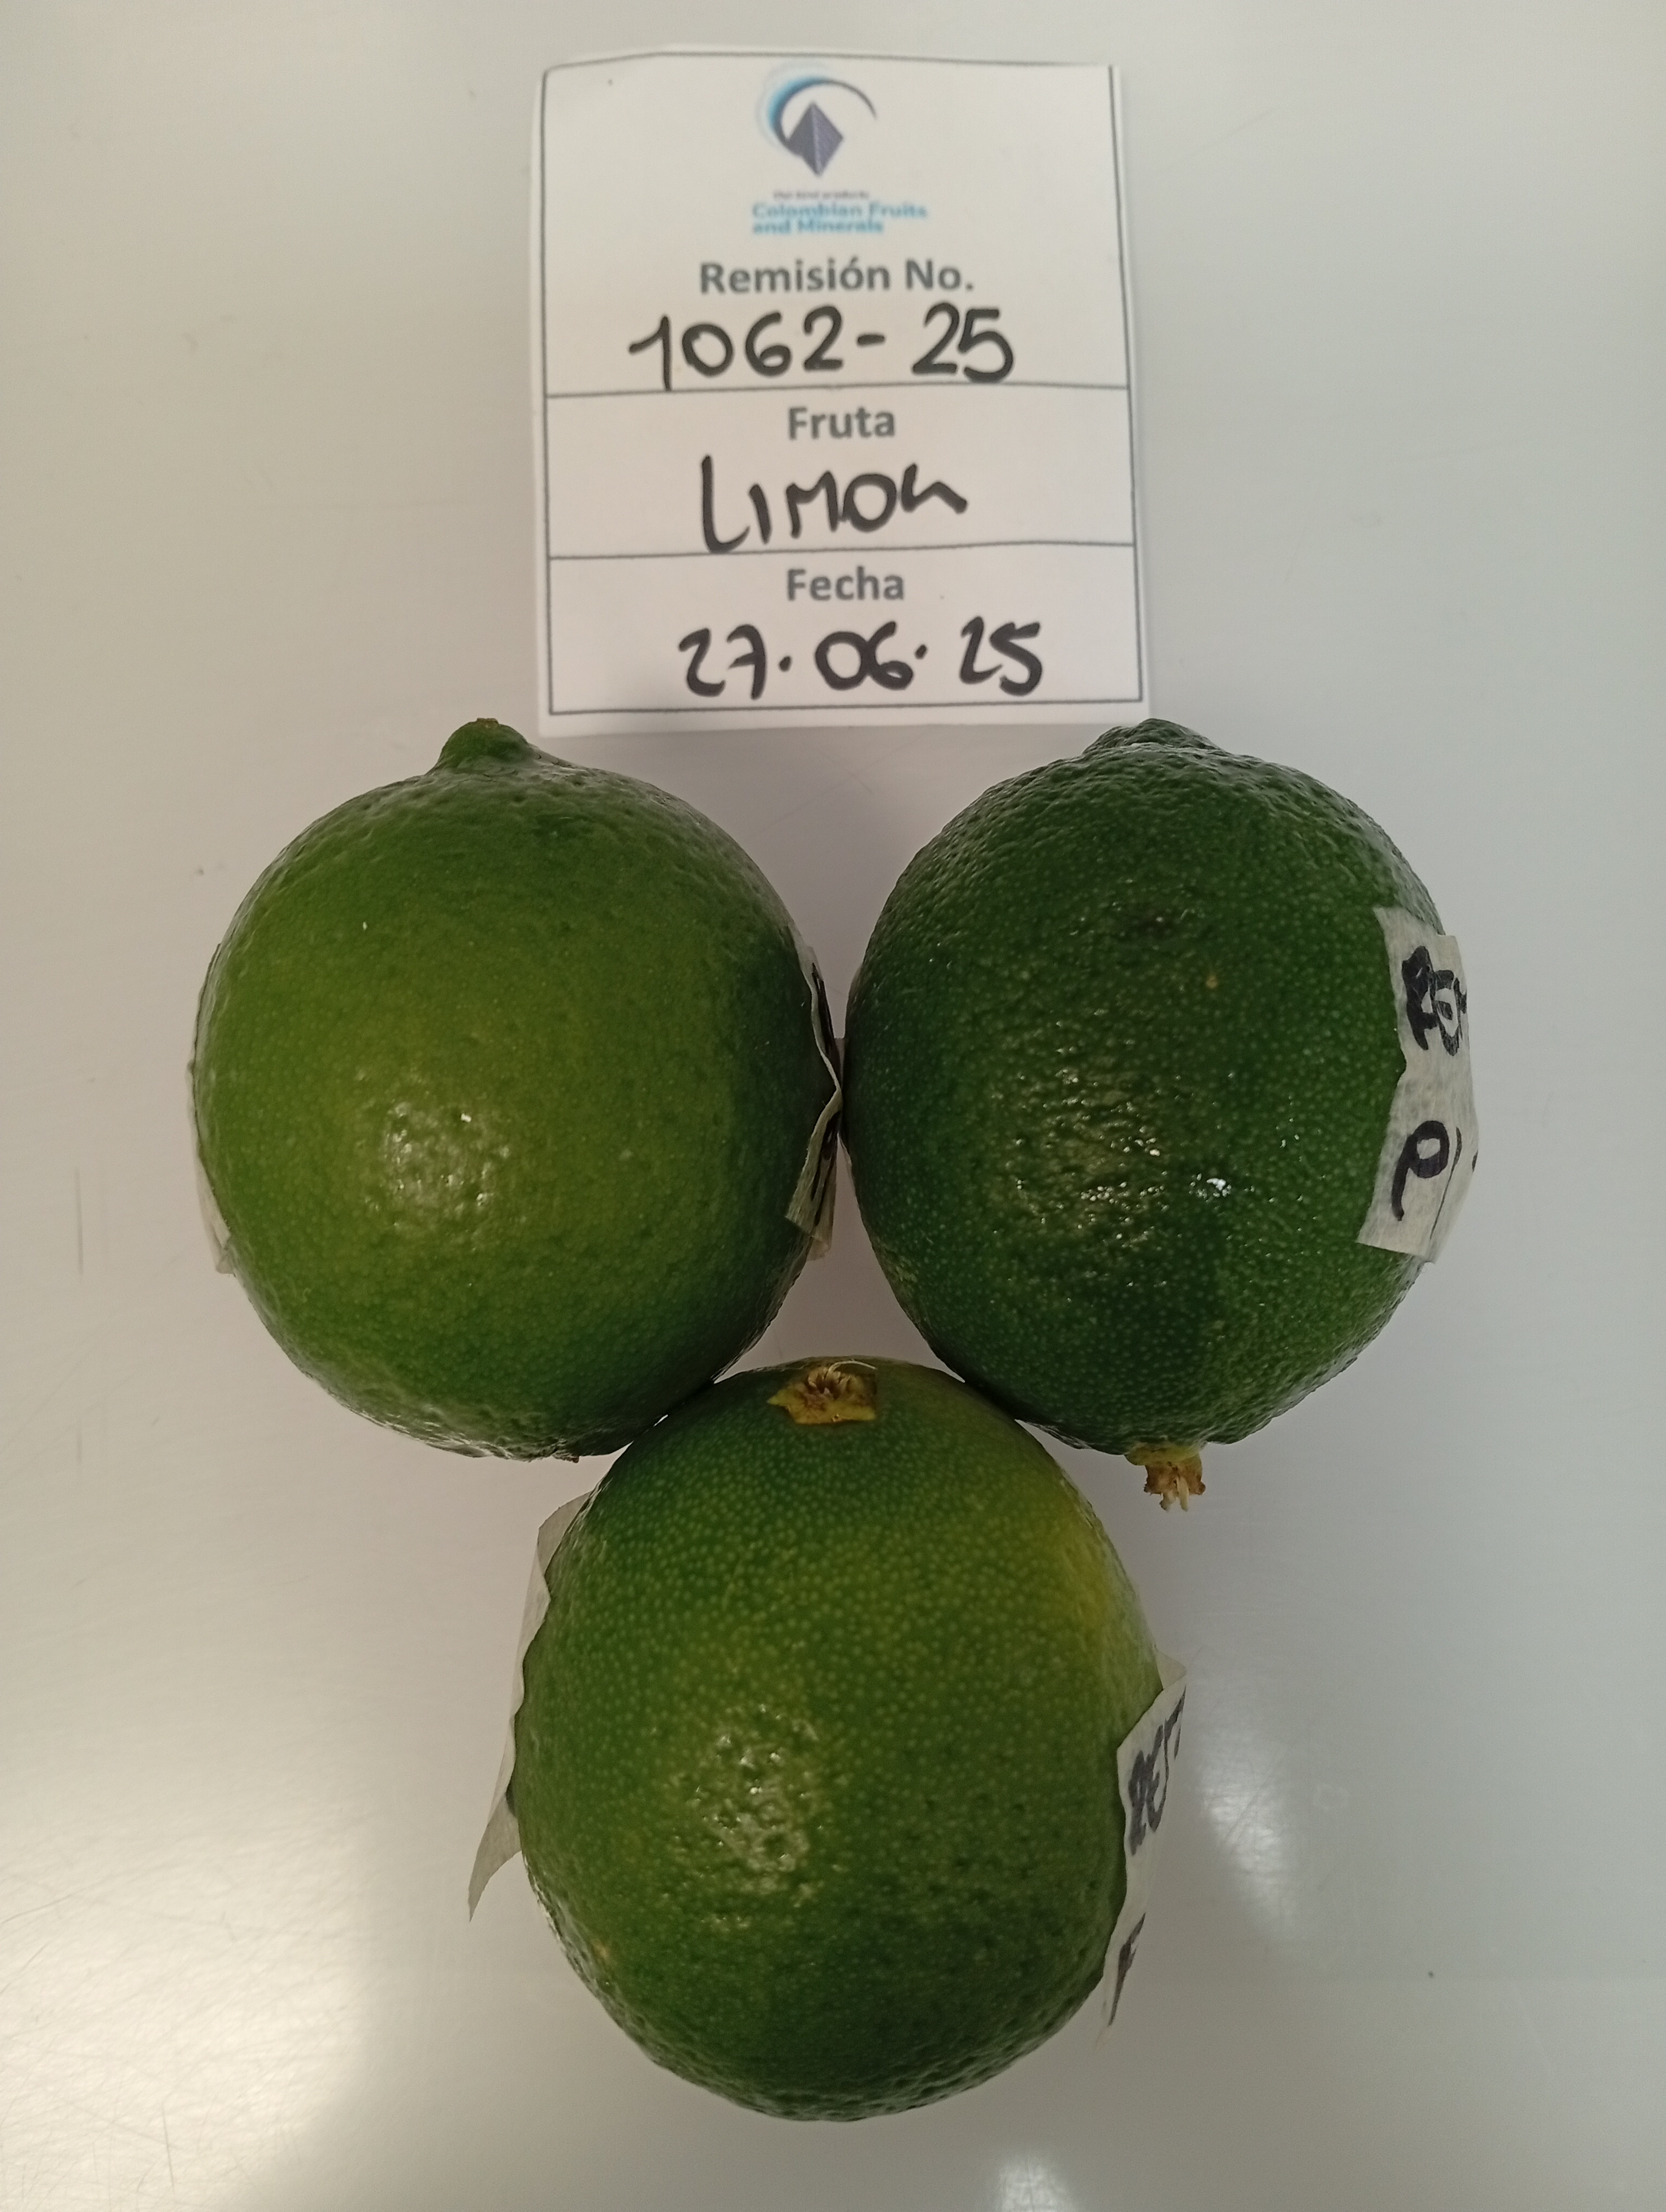 Colombian Fruits
and Minerals
Remisión No.
1062-25
Fruta
LIMON
Fecha
27.06.25